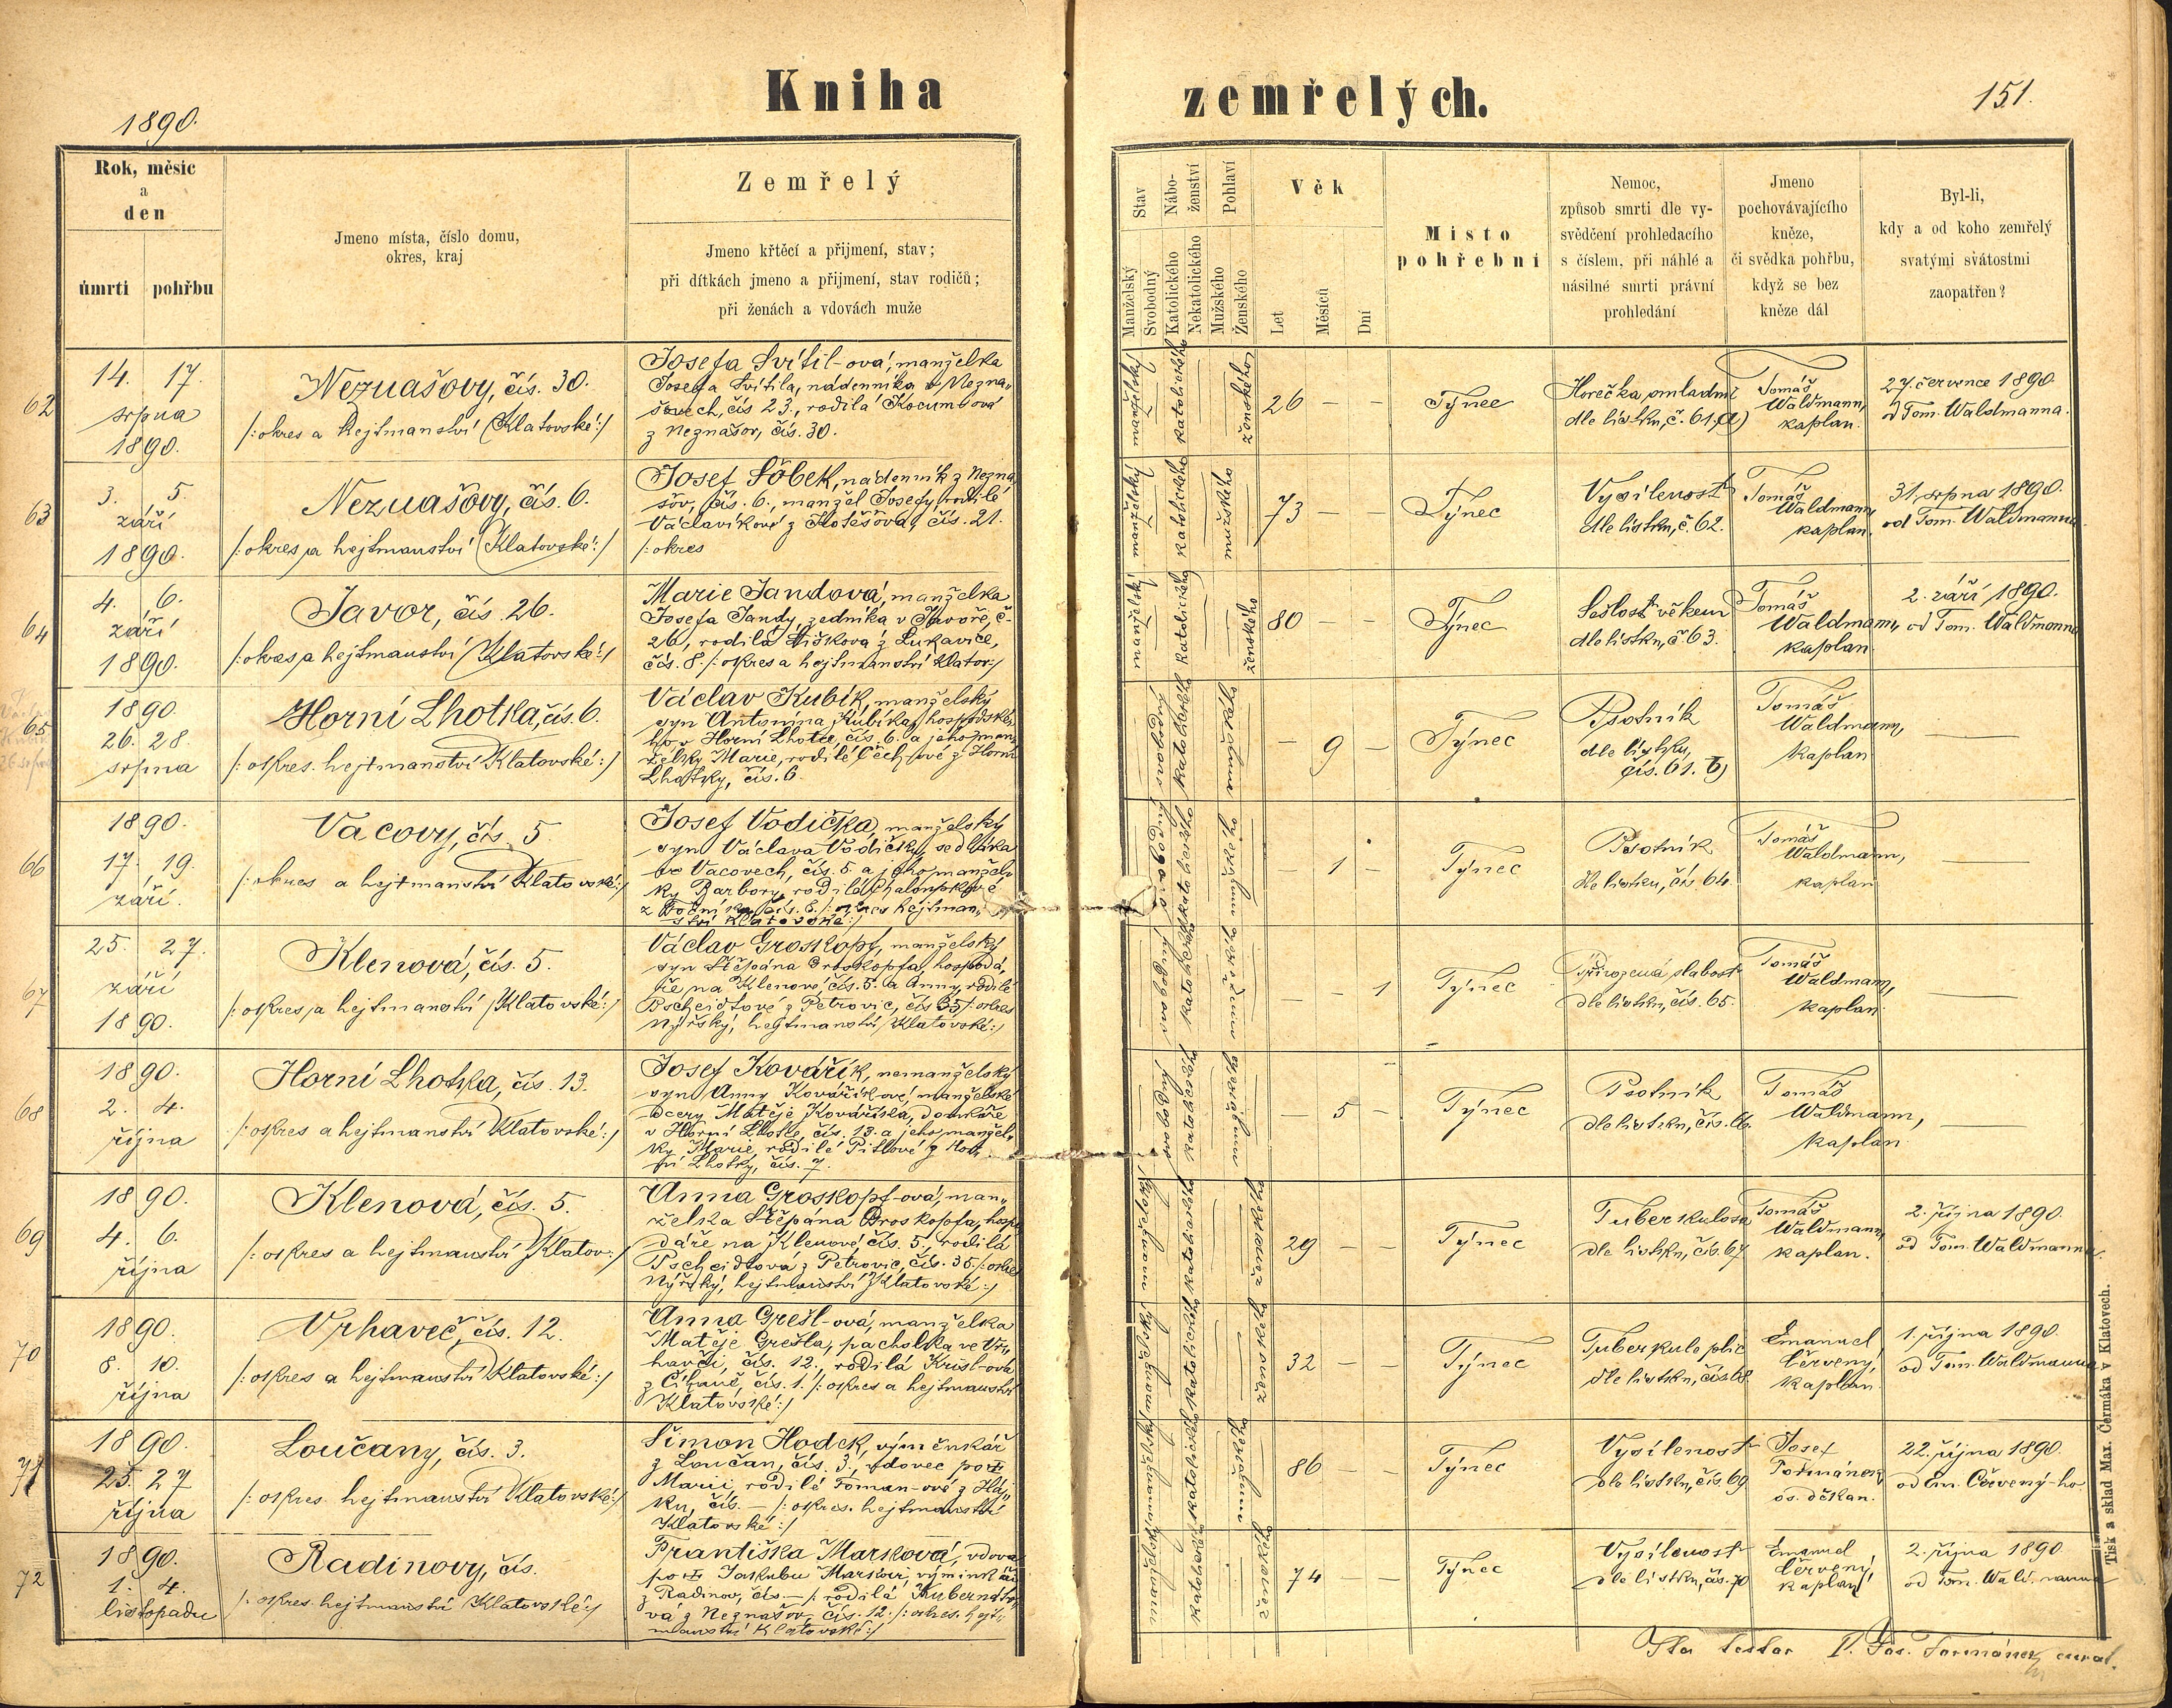 1890.
Kniha zemřelých.
151.
Rok, měsíc
a
den
úmrtí
pohřbu
Jmeno místa, číslo domu,
okres, kraj
Zemřelý
Jmeno křtěcí a přijmení, stav;
při dítkách jmeno a přijmení, stav rodičů;
při ženách a vdovách muže
Stav
Manželský
Svobodný
Nábo-
ženství
Katolického
Nekatolického
Pohlaví
Mužského
Ženského
Věk
Let
Měsíců
Dní
Místo
pohřební
Nemoc,
způsob smrti dle vy-
svědčení prohledacího
s číslem, při náhlé a
násilné smrti právní
prohledání
Jmeno
pochovávajícího
kněze,
či svědka pohřbu,
když se bez
kněze dál
Byl-li,
kdy a od koho zemřelý
svatými svátostmi
zaopatřen?
62
14. 17.
srpna
1890.
Neznašovy, čís. 30.
/:okres a hejtmanství Klatovské:/
Josefa Svítil-ová, manželka
Josefa Svítila, nádenníka v Nezna„
šovech, čís 23., rodilá Kocumbová
z Neznašov, čís. 30.
manželský
katolického
ženského
26 — —
Týnec
Horečka omladnic
dle lístku, č. 61. a)
Tomáš
Waldmann,
kaplan.
27. července 1890.
od Tom. Waldmanna.
63
3. 5.
září
1890.
Neznašovy, čís. 6.
/:okres a hejtmanství Klatovské:/
Josef Sőbek, nádenník z Nezna
šov, čís. 6., manžel Josefy, rodilé
Václavíkové z čís. 21.
/:okres
manželský
katolického
mužského
73 — —
Týnec
Vysílenost
dle lístku, č. 62.
Tomáš
Waldmann,
kaplan.
31. srpna 1890.
od Tom. Waldmanna
64
4. 6.
září
1890.
Javor, čís. 26.
/:okres a hejtmanství Klatovské:/
Marie Jandová, manželka
Josefa Jandy, zedníka v Javoře, č.
26, rodilá Šišková z Lukavice,
čís. 8. /:okres a hejtmanství Klatov:/
manželský
katolického
ženského
80 — —
Týnec
Sešlost věkem
dle lístku, č 63.
Tomáš
Waldmann,
kaplan
2. září 1890.
od Tom. Waldmanna
65
1890.
26. 28.
srpna
Horní Lhotka, čís. 6.
/:okres. hejtmanství Klatovské:/
Václav Kubík, manželský
syn Antonína Kubíka, hospodské„
ho v Horní Lhotce, čís. 6. a jeho man„
želky Marie, rodilé Čechové z Horní
Lhotky, čís. 6.
svobodný
katolického
mužského
— 9 —
Týnec
Psotník
dle lístku,
čís. 61. b)
Tomáš
Waldmann,
kaplan
—
66
1890.
17. 19.
září.
Vacovy, čís. 5.
/:okres a hejtmanství Klatovské:/
Josef Vodička, manželský
syn Václava Vodičky, sedláka
ve Vacovech, čís. 5. a jeho manžel„
ky Barbory, rodilé
čís. 6. /:okres hejtman„
ství Klatovské:/
svobodný
katolického
mužského
— 1 —
Týnec
Psotník
dle lístku, čís. 64.
Tomáš
Waldmann,
kaplan
—
67
25. 27.
září
1890.
Klenová, čís. 5.
/:okres a hejtmanství Klatovské:/
Václav Groskopf, manželský
syn Štěpána Groskopfa, hospodá„
ře na Klenové, čís. 5. a Anny, rodilé
Pscheidtové z Petrovic, čís 35 /:okres
Nýřský, hejtmanství Klatovské:/
svobodný
katolického
mužského
— — 1
Týnec
Přirozená slabost
dle lístku, čís. 65.
Tomáš
Waldmann,
kaplan.
—
68
1890.
2. 4.
října
Horní Lhotka, čís. 13.
/:okres a hejtmanství Klatovské:/
Josef Kovářík, nemanželský
syn Anny Kovaříkové, manželské
dcery Matěje Kovaříka, domkáře
v Horní Lhotce, čís. 13. a jeho manžel„
ky Marie, rodilé Pitlové z Hor„
ní Lhotky, čís. 7.
svobodný
katolického
mužského
— 5 —
Týnec
Psotník
dle lístku, čís. 66.
Tomáš
Waldmann,
kaplan
—
69
1890.
4. 6.
října
Klenová, čís. 5.
/:okres a hejtmanství Klatov:/
Anna Groskopf-ová, man„
želka Štěpána Groskopfa, hospo
dáře na Klenové, čís. 5. rodilá
Pscheidtová z Petrovic, čís. 35. /:okres
Nýřský, hejtmanství Klatovské:/
manželský
katolického
ženského
29 — —
Týnec
Tuberkulosa
dle lístku, čís. 67
Tomáš
Waldmann,
kaplan.
2. října 1890.
od Tom. Waldmanna.
70
1890.
8. 10.
října
Vrhaveč, čís. 12.
/:okres a hejtmanství Klatovské:/
Anna Grešl-ová, manželka
Matěje Grešla, pacholka ve Vr„
havči, čís. 12., rodilá Krisl-ová
z čís. 1. /:okres a hejtmanství
Klatovské:/
manželský
katolického
ženského
32 — —
Týnec
Tuberkule plic
dle lístku, čís 68.
Emanuel
Červený,
kaplan.
1. října 1890.
od Tom. Waldmanna
71
1890.
25. 27
října
Loučany, čís. 3.
/:okres. hejtmanství Klatovské:/
Šimon Hodek, výměnkář
z Loučan, čís. 3, vdovec po †
Marii rodilé Toman-ové z
čís. — /:okres. hejtmanství
Klatovské:/
manželský
katolického
mužského
86 — —
Týnec
Vysílenost
dle lístku, čís. 69
Josef
Formánek
os. děkan.
22. října 1890.
od Em. Červený-ho.
72
1890.
1. 4.
listopadu
Radinovy, čís.
/:okres. hejtmanství Klatovské:/
Františka Marková, vdova
po † Jakubu Markovi, výměnkáři
z Radinov, čís. — /: rodilá
vá z Neznašov, čís. 12. /:okres. hejt„
manství Klatovské:/
manželský
katolického
ženského
74 — —
Týnec
Vysílenost
dle lístku, čís. 70
Emanuel
Červený,
kaplan
2. října 1890
od Tom. Waldmanna
Ita testor P. Jos. Formánek, curat.
Tisk a sklad Max. Čermáka v Klatovech.